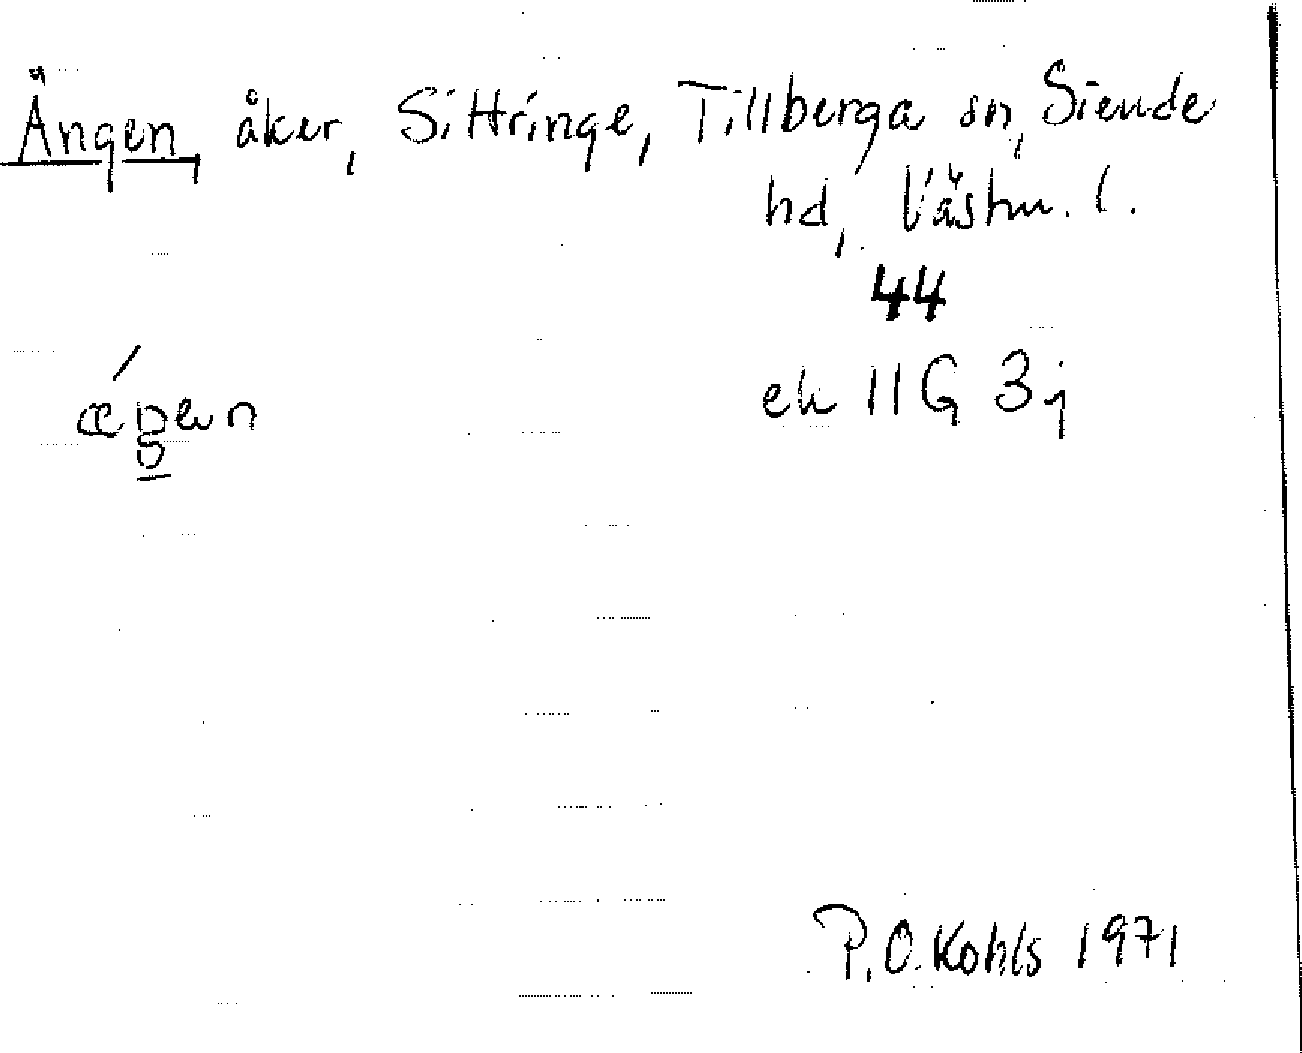 Ängen, åker, Sittringe, Tillberga sn, Siende
hd, Västm. l.
44
ek 11G 3j
P.O. Kohls 1971